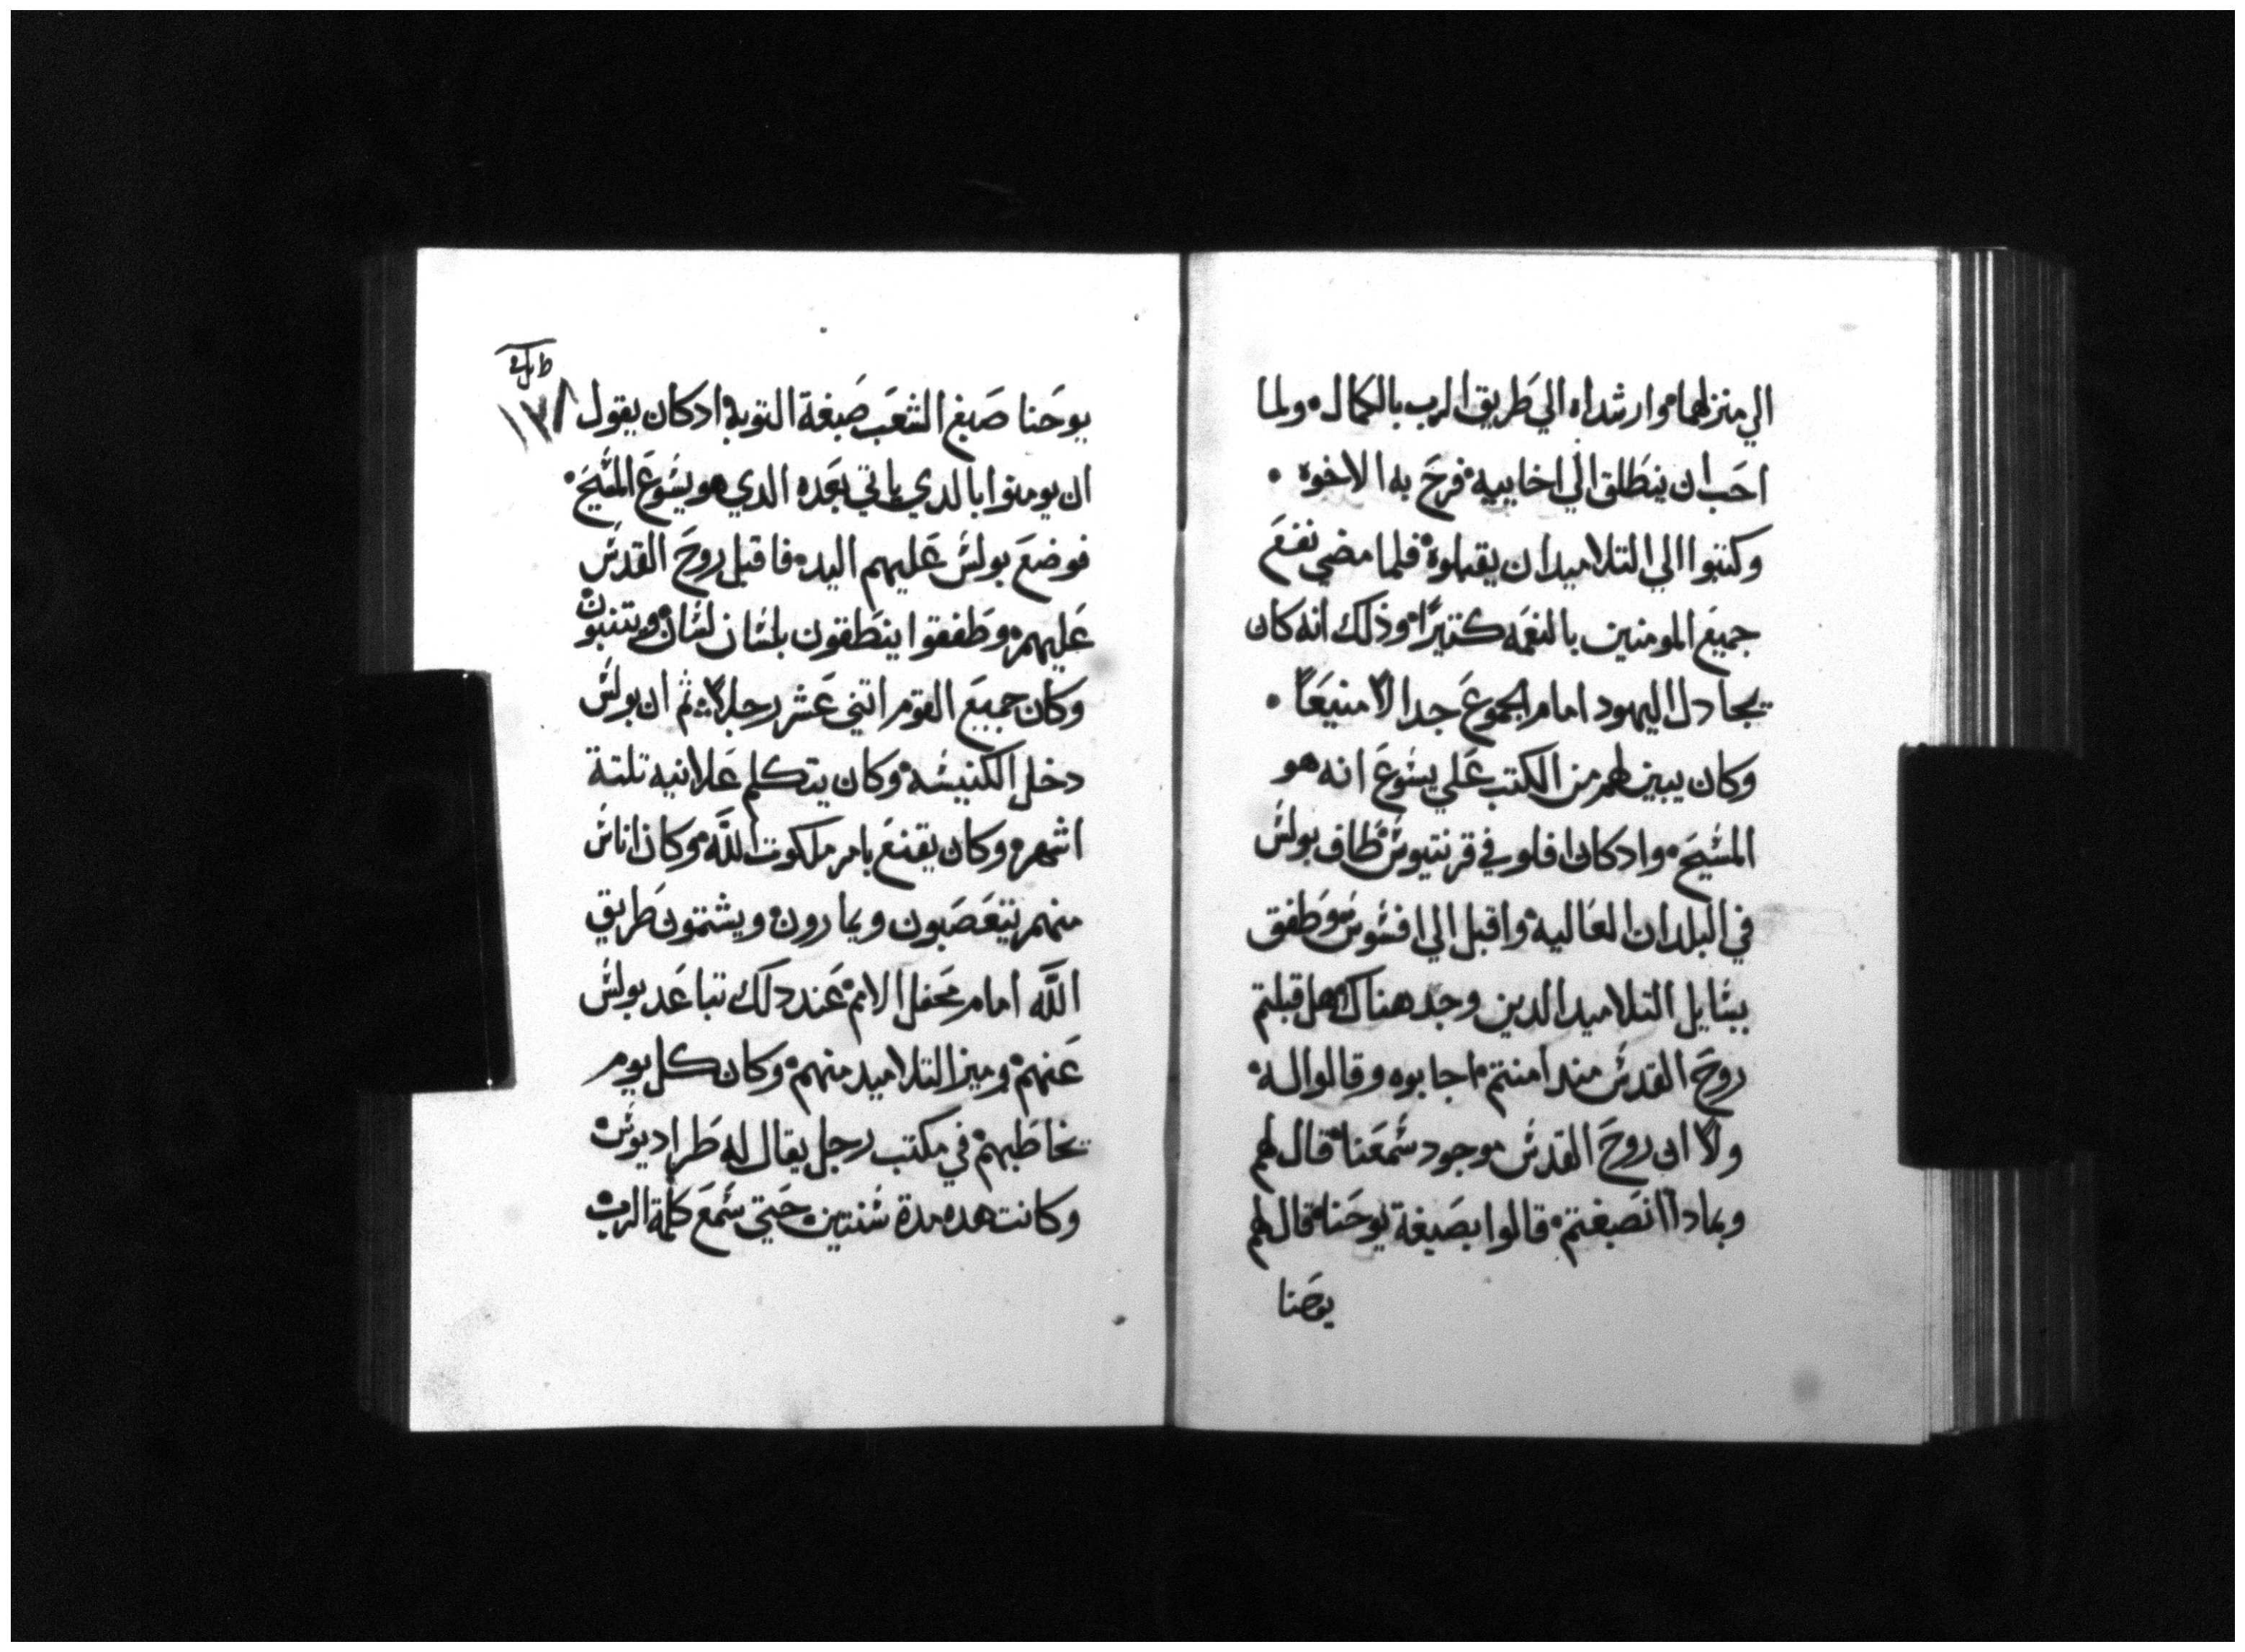 الي منزلهما وارشداه الي طريق الرب بالكمال ولما
احب ان ينطلق الي اخاييه فرح به الاخوه
وكتبوا الي التلاميد ان يقبلوه فلما مضي نفع
جميع المومنين بالنعمه كتيرًا وذلك انه كان
يجادل اليهود امام الجموع جدالاً منيعًا
وكان يبين لهم من الكتب علي يسوع انه هو
المسيح واد كان افلو في قرنتيوس طاف بولس
في البلدان العاليه واقبل الي افسوس وطفق
يسايل التلاميد الدين وجد هناك هل قبلتم
روح القدس مند امنتم اجابوه وقالوا له
ولا ان روح القدس موجود سمعنا قال لهم
وبمادا انصبغتم قالوا بصبغة يوحنا قال لهم
يوحنا
يوحنا صبغ الشعب صبغة التوبه اد كان يقول
ان يومنوا بالدي ياتي بعده الدي هو يسوع المسيح
فوضع بولس عليهم اليد فاقبل روح القدس
عليهم وطفقوا ينطقون بلسان لسان ويتنبون
وكان جميع القوم اتني عشر رجلاً ثم ان بولس
دخل الكنيسه وكان يتكلم علانيه تلتة
اشهر وكان يقنع بامر ملكوت الله وكان اناس
منهم يتعصبون ويمارون ويشتمون طريق
الله امام محفل الامم عند دلك تباعد بولس
عنهم وميز التلاميد منهم وكان كل يوم
يخاطبهم في مكتب رجل يقال له طراديوس
وكانت هده مدة سنتين حتي سمع كلمة الرب